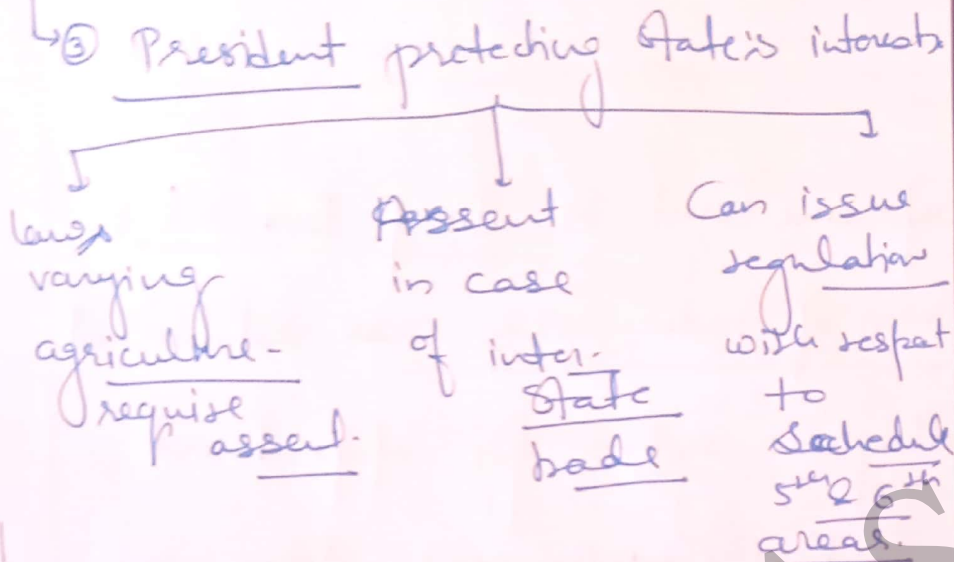 ③ President protecting State's interests
laws
varying
agriculture-
require
assent.
Assent
in case
of inter-
State
trade
Can issue
regulation
with respect
to
Schedule
5th & 6th
areas.